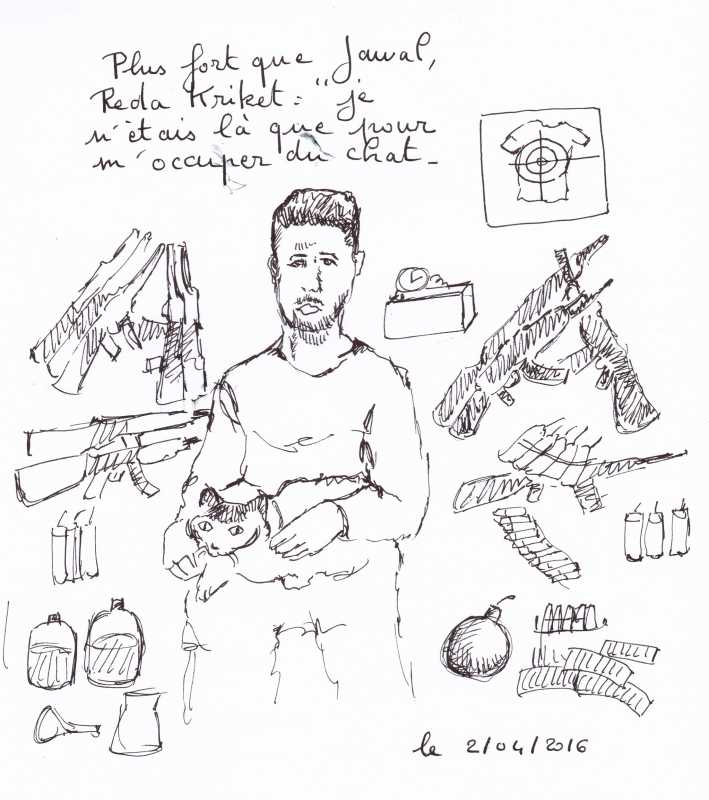 Plus fort que Jawal,
Reda Kriket : "je
n'étais là que pour
m'occuper du chat_
le 2/04/2016